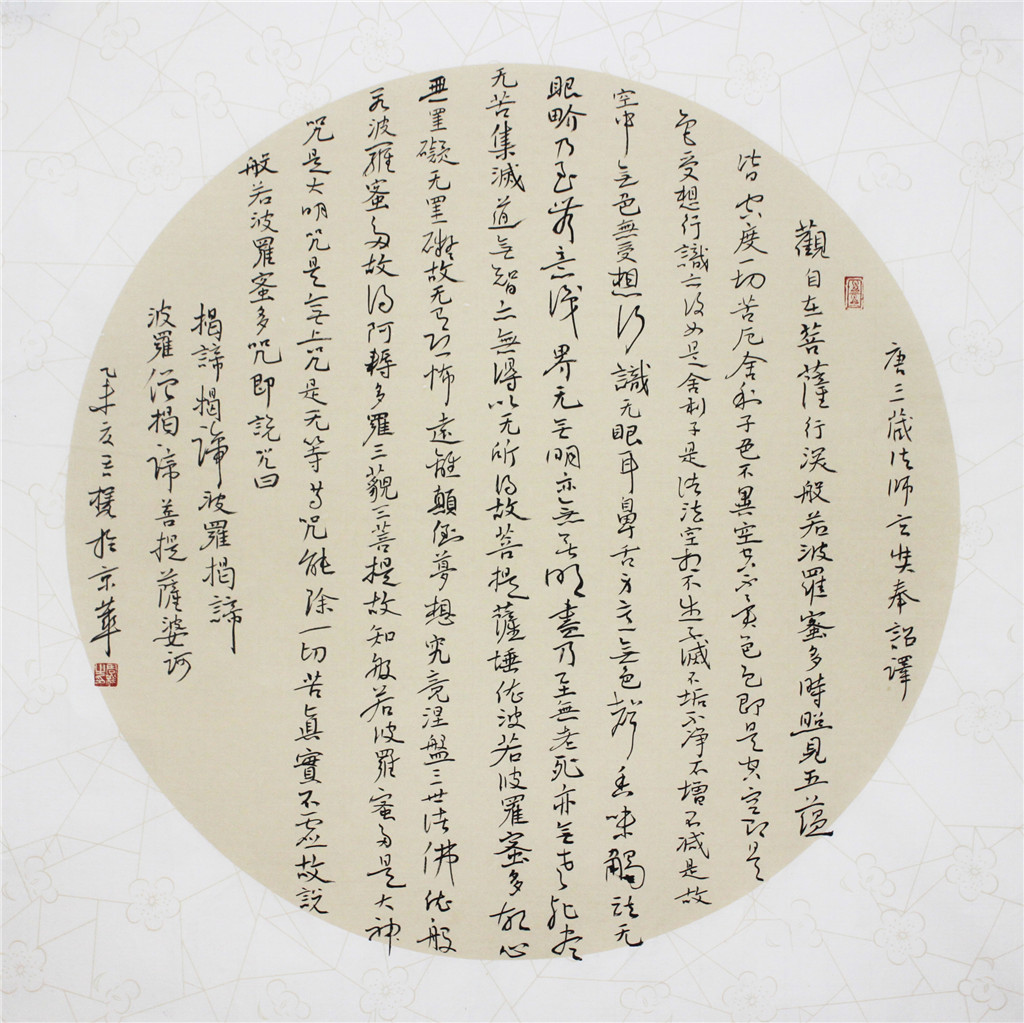 唐三藏法师玄奘奉詔譯
觀自在菩薩行深般若波羅蜜多時照見五蕴
皆空度一切苦厄舍利子色不異空空不异色色即是空空即是
色受想行識亦復如是舍利子是諸法空相不生不滅不垢不净不增不减是故
空中無色無受想行識无眼耳鼻舌身意無色声香味觸法无
眼界乃至无意识界无无明亦無无明盡乃至無老死亦無老死尽
无苦集滅道無智亦無得以无所得故菩提薩埵依波若波羅蜜多故心
無罣礙无罣礙故无有恐怖遠離顛倒夢想究竟涅盤三世诸佛依般
若波羅蜜多故得阿耨多羅三藐三菩提故知般若波羅蜜多是大神
咒是大明咒是無上咒是无等等咒能除一切苦真實不虚故説
般若波羅蜜多咒即説咒曰
揭諦揭諦波羅揭諦
波羅僧揭諦菩提薩婆訶
乙未夏王
於京華